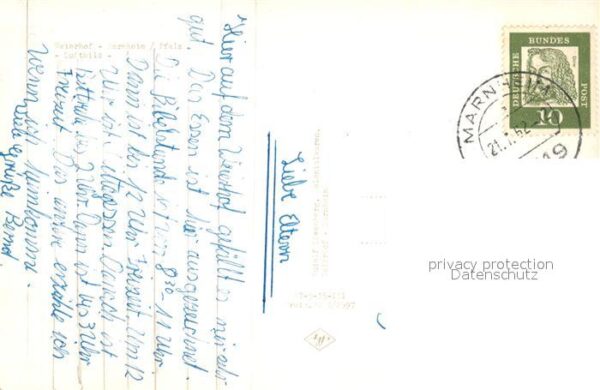 Weierhof - Bornheim / Pfalz -
- Luftbild -
Liebe Eltern
Hier auf dem Weierhof gefällt es mir sehr
gut. Das Essen ist hier ausgezeichnet
Die Bibelstunde ist von 8 30 - 11 Uhr
Dann ist bis 12 Uhr Freizeit. Um 12
Uhr ist Mittagessen. Danach ist
Bettruhe bis 2 Uhr. Dann ist bis 3 Uhr
Freizeit. Das andere erzähle ich
wenn ich heimkomme.
Viele Grüße Bernd.
DEUTSCHE BUNDES POST
10
MARNHEIM
21.
62
19
privacy protection
Datenschutz